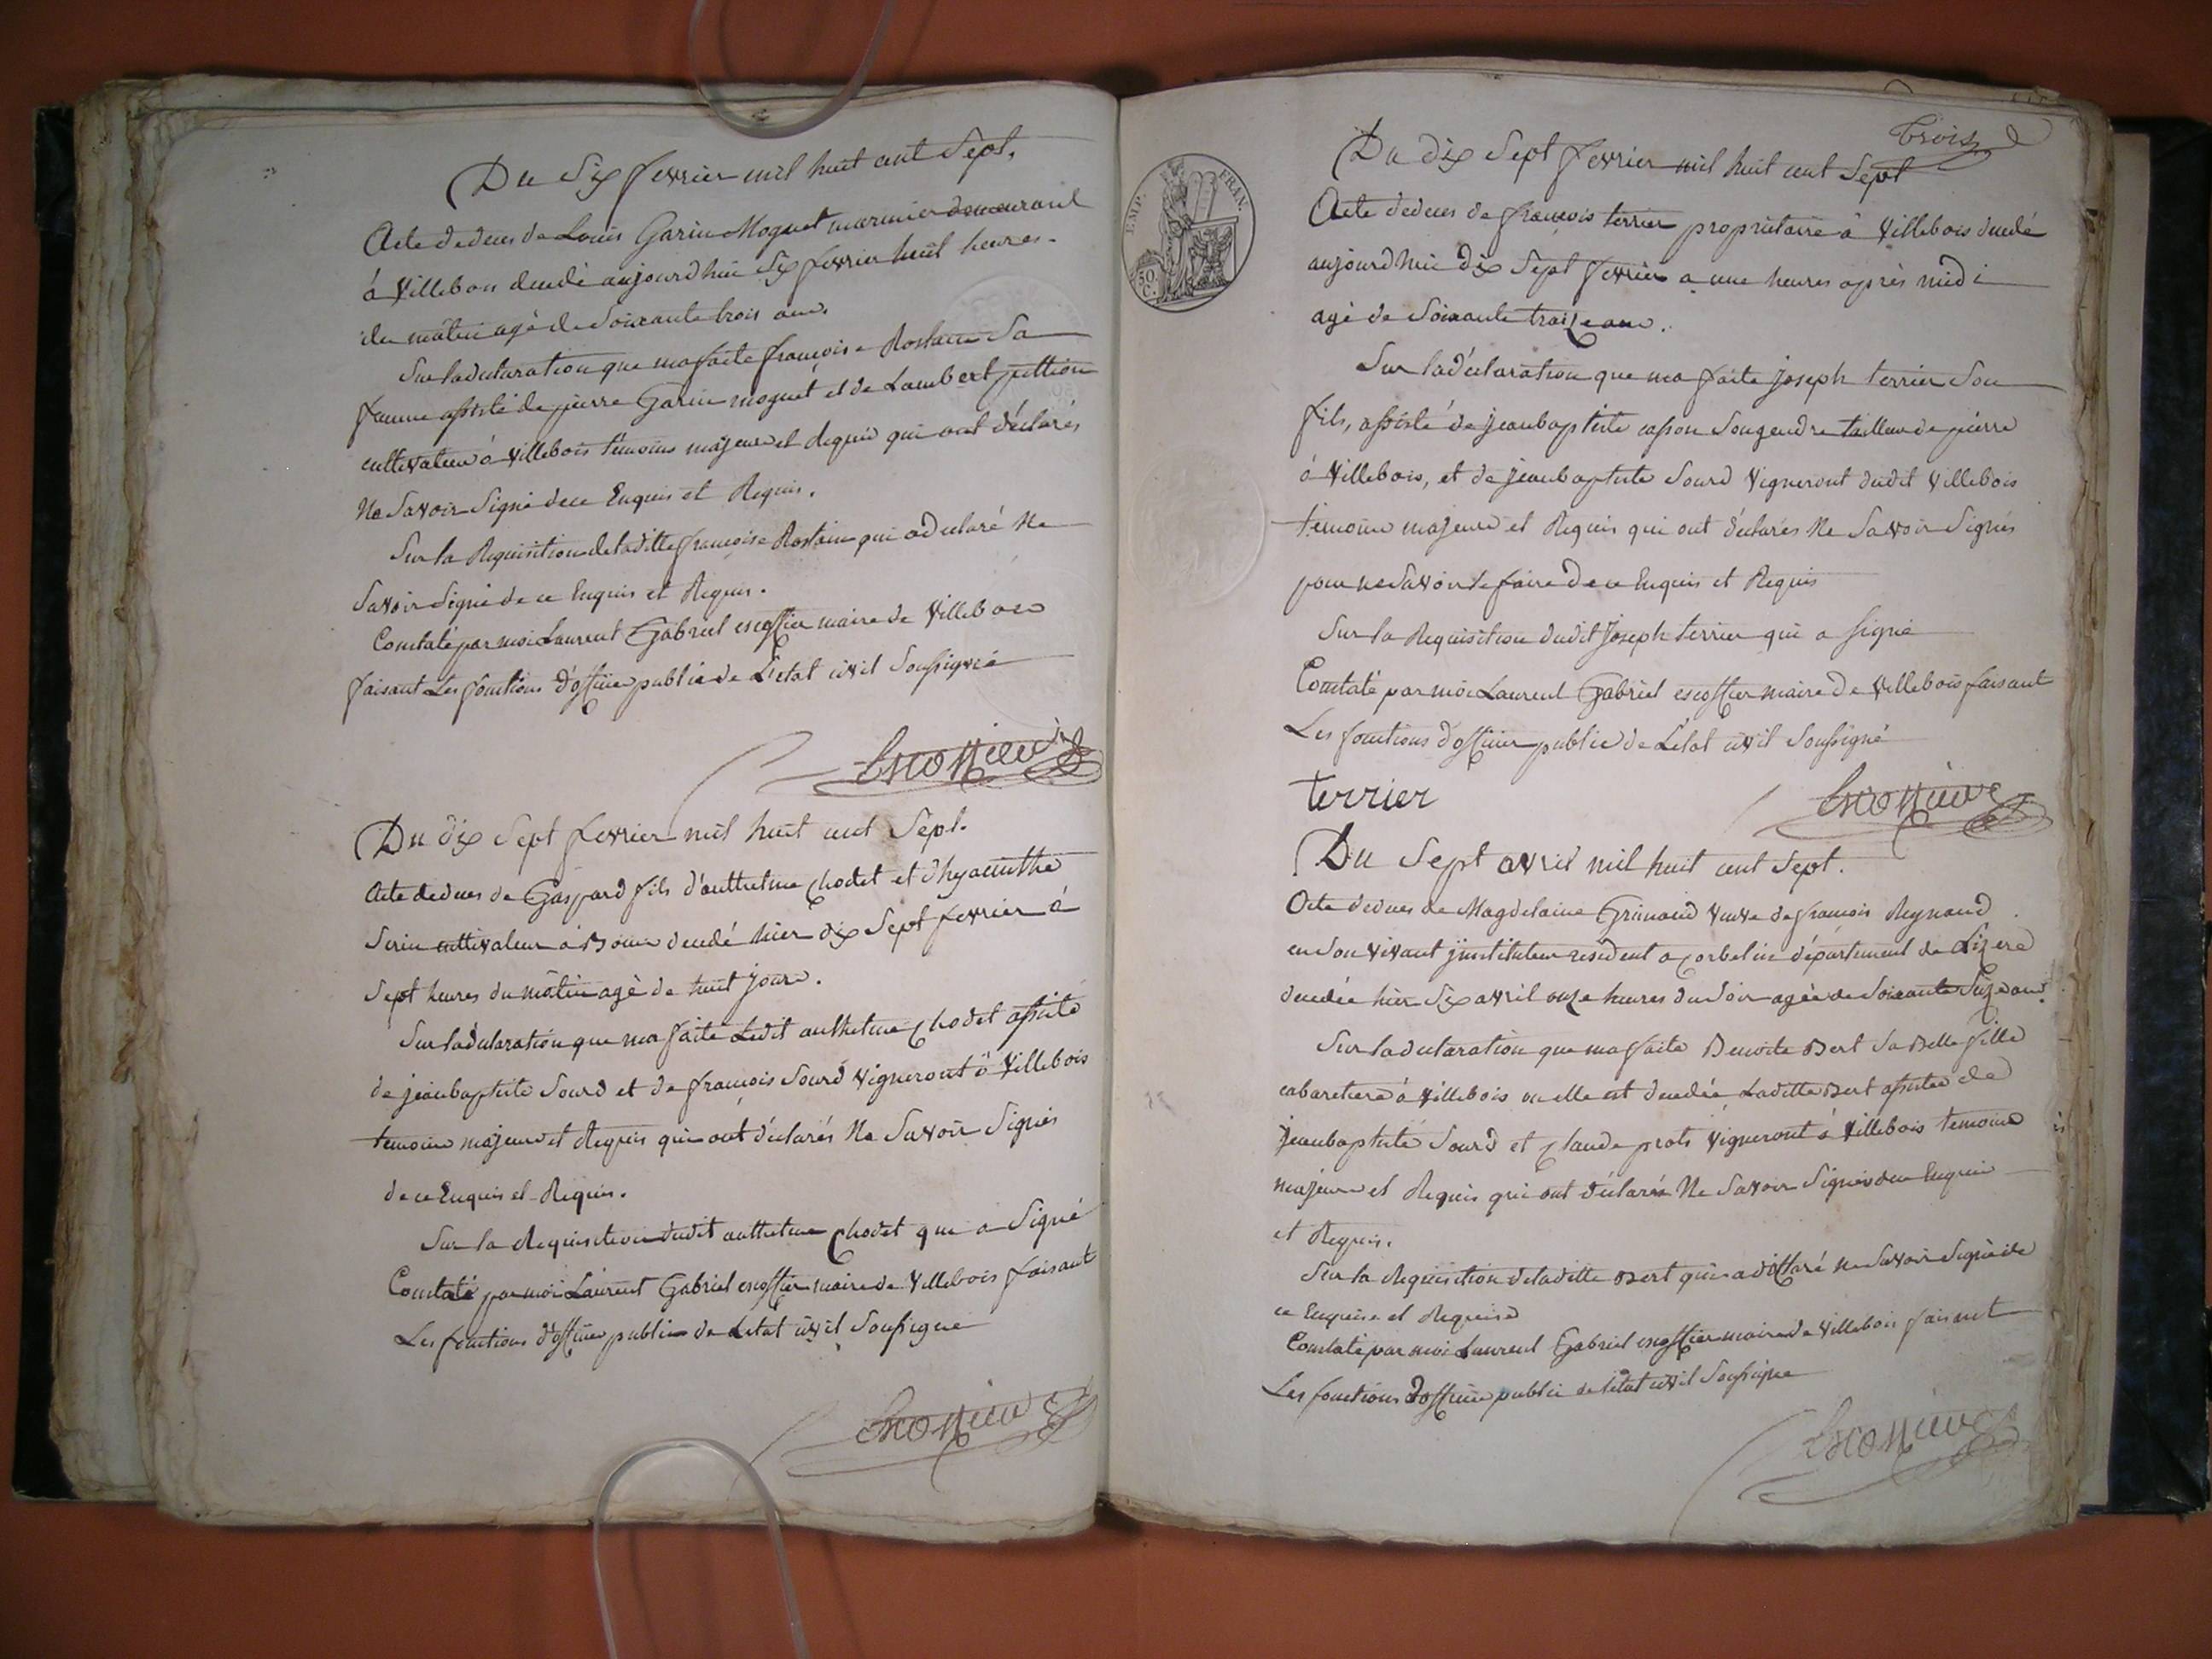 Du Six fevrier mil huit cent Sept.
Acte de deces de Louis Garin Moguet marinier demeurant
à Villebois decedé aujourd'hui Six fevrier huit heures
du mâtin agé de Soixante trois ans.
Sur la declaration que ma faite françoise Rostain Sa
femme assisté de pierre Garin moguet et de Lambert
cultivateur à Villebois temoins majeurs et Requis qui ont déclarés
Ne Savoir Signé de ce Enquis et Requis.
Sur la Requisition de laditte françoise Rostain qui a declaré Ne
Savoir Signé de ce Enquis et Requis.
Constaté par moi Laurent Gabriel escoffier maire de Villebois
faisant Les fonctions d'officier public de L'etat civil Soussigné
Escoffier
Du dix Sept fevrier mil huit cent Sept.
Acte de deces de Gaspard fils d'anthelme Chodet et d'hyacinthe
Serin cultivateur à Bouis decedé hier dix Sept fevrier à
Sept heures du mâtin agé de huit jours.
Sur la déclaration que ma faite Ledit anthelme Chodet assisté
de jean baptiste Sourd et de françois Sourd Vigneront à Villebois
temoins majeurs et Requis qui ont déclarés Ne Savoir Signés
de ce Enquis et Requis.
Sur la Requisition dudit anthelme Chodet qui a Signé
Constaté par moi Laurent Gabriel escoffier maire de Villebois faisant
Les fonctions d'officier public de Letat civil Soussigné
Escoffier
trois
EMP. FRAN.
50 C.
Du dix Sept fevrier mil huit cent Sept
Acte de deces de françois terrier propriétaire à Villebois decedé
aujourd'hui dix Sept fevrier a une heures après midi
agé de Soixante traize ans.
Sur la déclaration que ma faite joseph terrier Son
fils, assisté de jean baptiste casson Son gendre tailleur de pierre
à Villebois, et de jean baptiste Sourd Vigneront dudit Villebois
temoins majeurs et Requis qui ont déclarés Ne Savoir Signés
pour ne Savoir le faire de ce Enquis et Requis
Sur la Requisition dudit Joseph terrier qui a signé
Constaté par moi Laurent Gabriel escoffier maire de Villebois faisant
Les fonctions d'officier public de L'etat civil Soussigné
terrier
Escoffier
Du Sept avril mil huit cent Sept.
Acte de deces de Magdelaine Grimaud Veuve de françois Reynaud
en Son Vivant jnstituteur resident a Corbelin département de Lizere
decedée hier Six avril onze heures du Soir agée de Soixante Seize ans.
Sur la declaration que ma faite Benoite Bert Sa Belle fille
cabaretiere à Villebois ou elle est decedée Laditte Bert assistée de
jean baptiste Sourd et Claude prots Vigneront à Villebois temoins
majeurs et Requis qui ont déclarés Ne Savoir Signés de ce Enquis
et Requis.
Sur la Requisition de laditte Bert qui a declaré ne Savoir Signé de
ce Enquise et Requise
Constaté par moi Laurent Gabriel escoffier maire de Villebois faisant
Les fonctions d'officier public de L'etat civil Soussigné
Escoffier